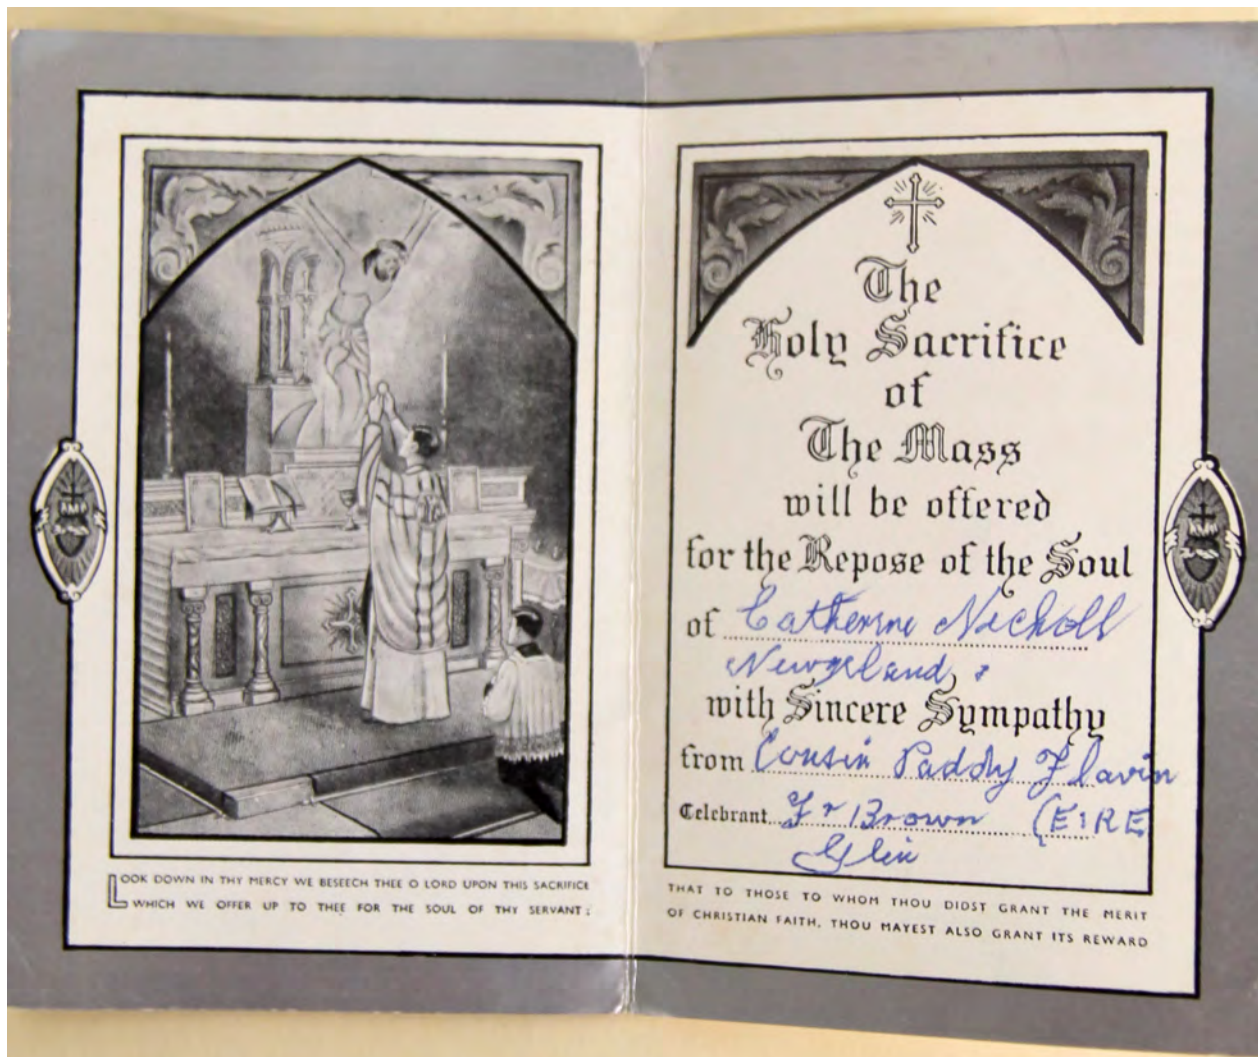 LOOK DOWN IN THY MERCY WE BESEECH THEE O LORD UPON THIS SACRIFICE
WHICH WE OFFER UP TO THEE FOR THE SOUL OF THY SERVANT:
The
Holy Sacrifice
of
The Mass
will be offered
for the Repose of the Soul
of Catherine Nicholl
Newzeland :
with Sincere Sympathy
from Cousin Paddy Flavin
Celebrant Fr Brown (EIRE
Glin
THAT TO THOSE TO WHOM THOU DIDST GRANT THE MERIT
OF CHRISTIAN FAITH, THOU MAYEST ALSO GRANT ITS REWARD